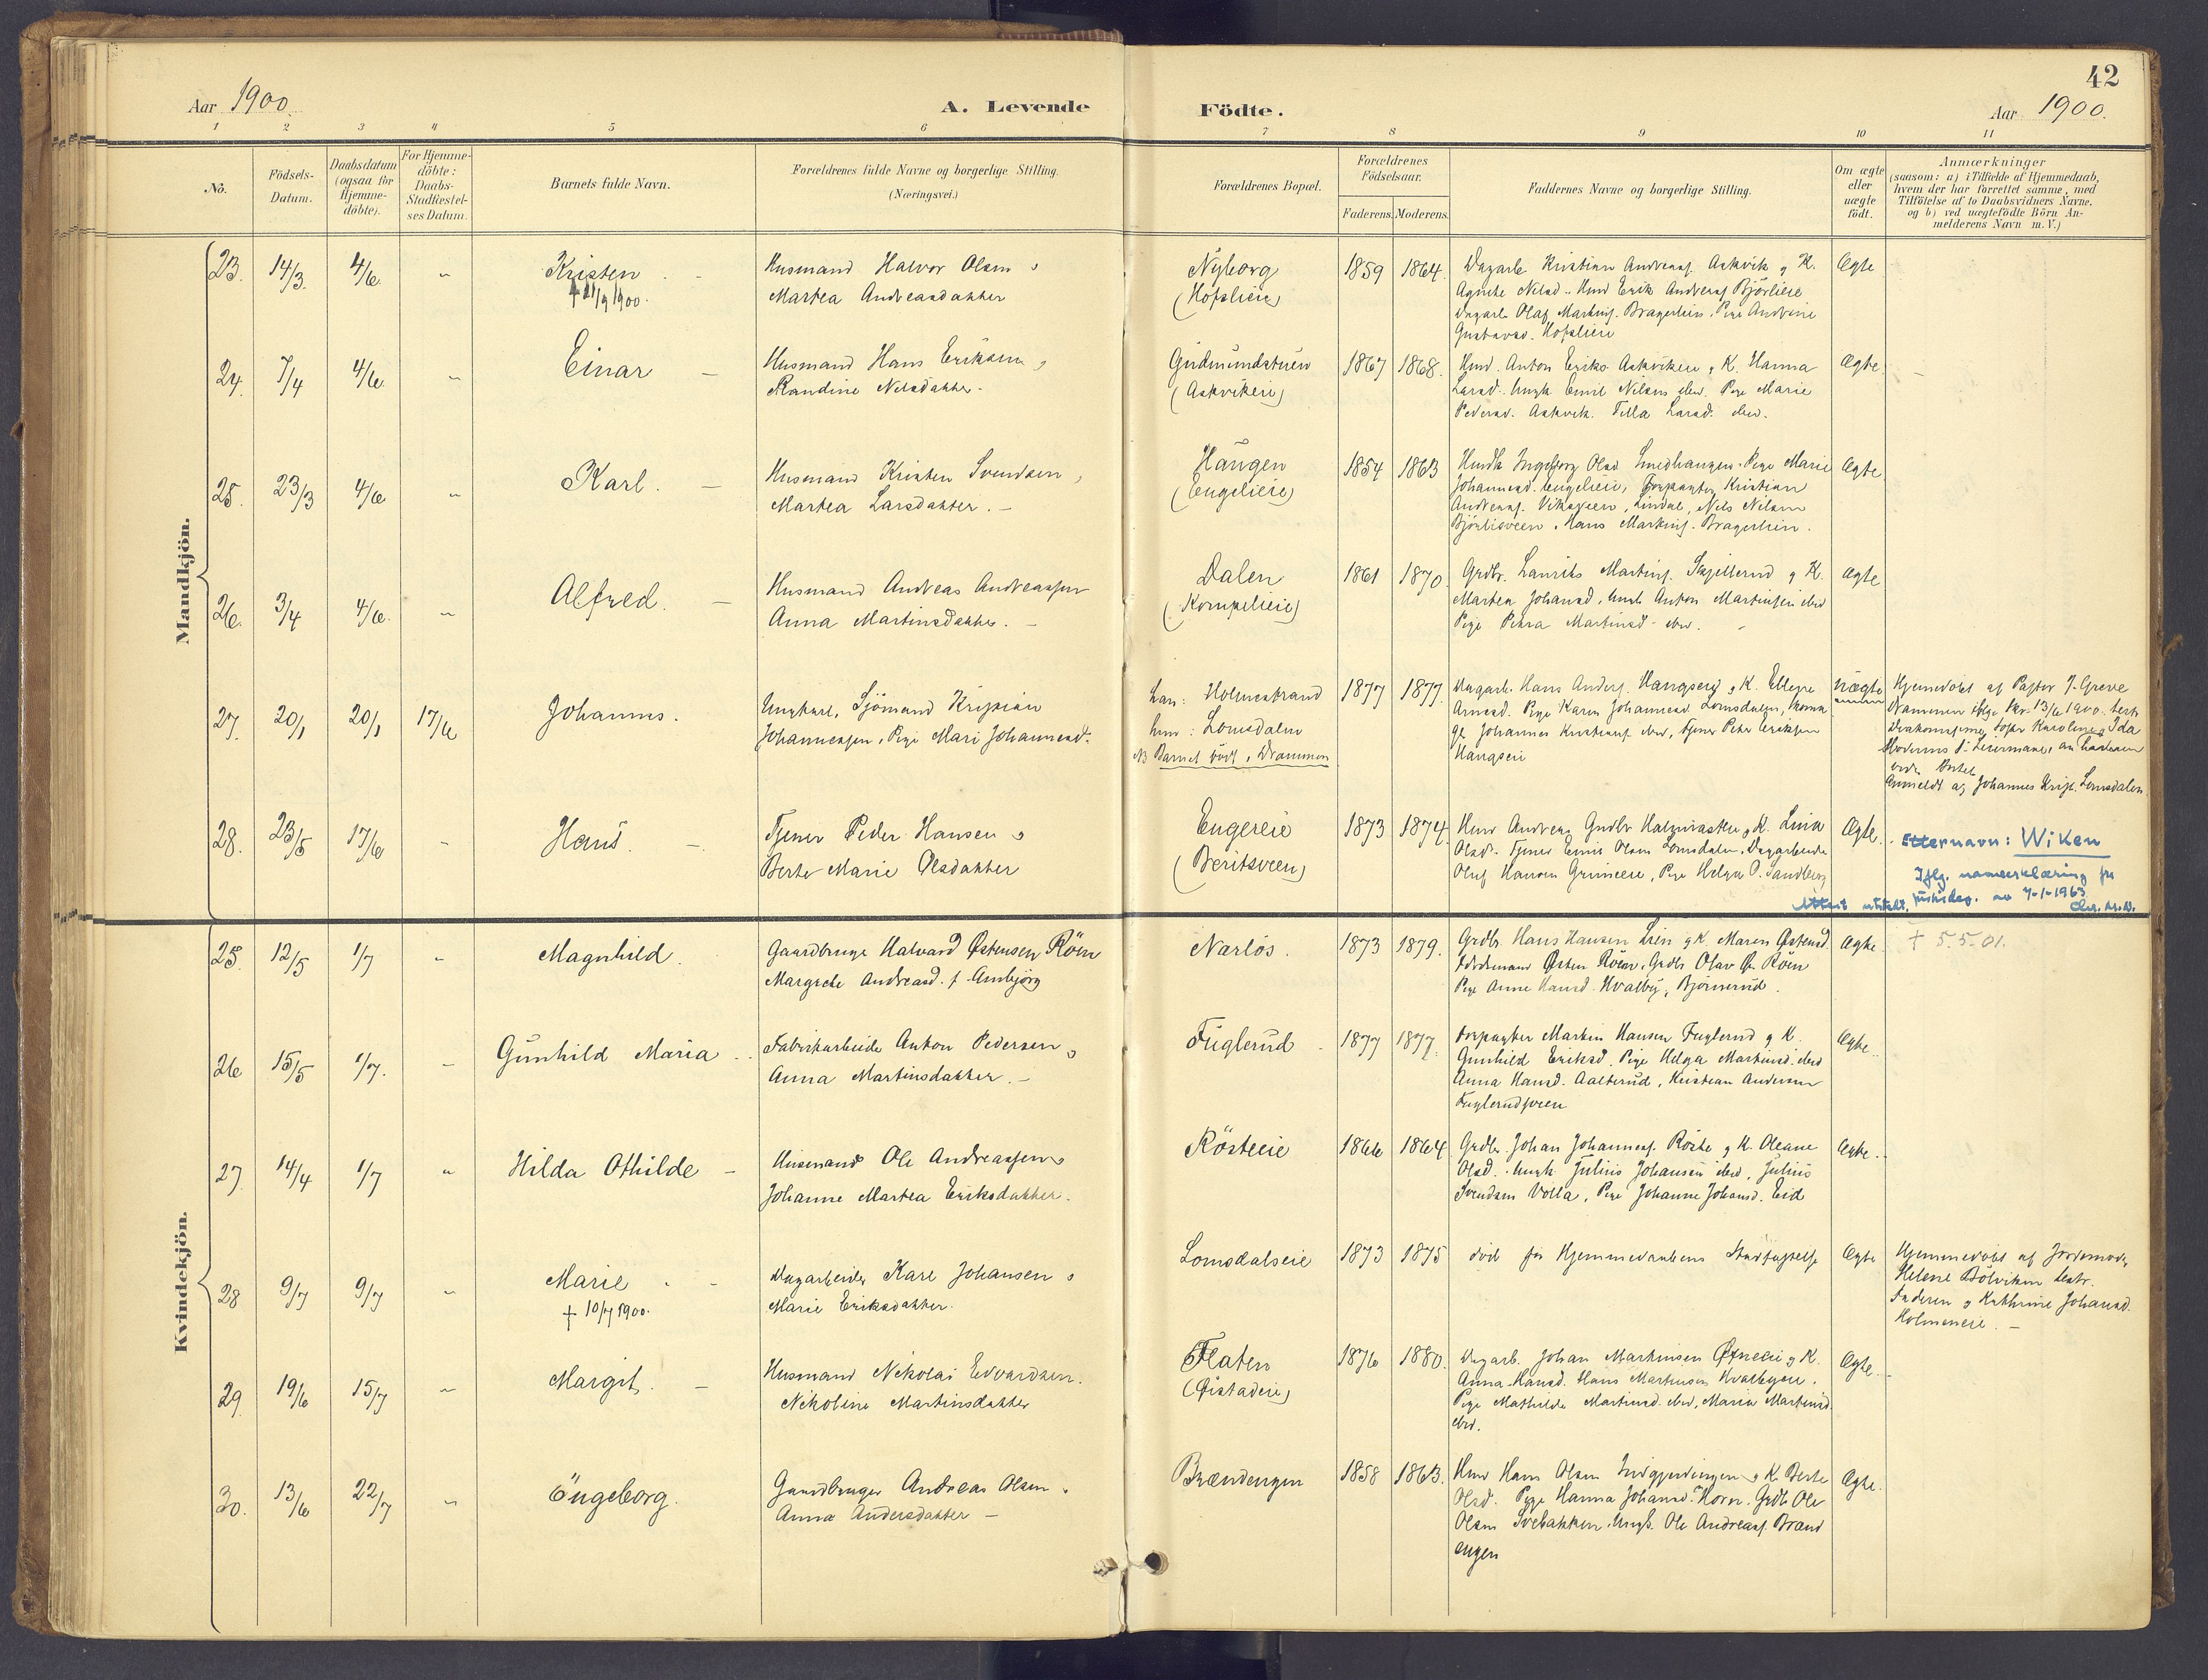 42
Aar 1900.
A. Levende Födte.
Aar 1900.
1 2 3 4 5 6 7 8 9 10 11
No.
Födsels-Datum.
Daabsdatum (ogsaa for Hjemme-döbte).
For Hjemme-döbte: Daabs-Stadfæstel-ses Datum.
Barnets fulde Navn.
Forældrenes fulde Navne og borgerlige Stilling. (Næringsvei.)
Forældrenes Bopæl.
Forældrenes Födselsaar.
Faderens. Moderens.
Faddernes Navne og borgerlige Stilling.
Om ægte eller uægte födt.
Anmærkninger
(saasom: a) i Tilfælde af Hjemmedaab,
hvem der har forrettet samme, med
Tilföielse af to Daabsvidners Navne.
og b) ved uægtefödte Börn An-
melderens Navn m.V.)
Mandkjön.
23. 14/3. 4/6. "
Kristen
† 21/9 1900.
Husmand Halvor Olsen &
Martea Andreasdatter
Nyborg
(Hofslieie)
1859 1864.
Dagarb. Kristian Andreass. Askvik & K.
Agnete Nilsd. Hmd Erik Andreass Björlieie
Dagarb Olaf Martins. Bragerlien. Pige Andrine
Gustavsd. Hofslieie
Ægte
24. 7/4 4/6. "
Einar
Husmand Hans Eriksen &
Randine Nilsdatter
Gudmundstuen
(Askvikeie)
1867 1868.
Hmd. Anton Eriks. Askvikeie & K. Hanna
Larsd. Ungk Emil Nilsens ibid. Pige Marie
Pedersd. Askvik. Tilla Larsd. ibid.
Ægte.
25. 23/3 4/6 "
Karl.
Husmand Kristen Svendsen &
Martea Larsdatter.
Haugen
(Engelieie)
1854 1863
Hmdk Ingeborg Olsd. Smedhaugen. Pige Marie
Johannesd. Engelieie, Forpagter Kristian
Andreass. Viksveen, Lindal, Nils Nilsen
Björlisveen, Hans Martins. Bragerlien.
Ægte
26. 3/4 4/6. "
Alfred.
Husmand Andreas Andreassen
Anna Martinsdatter.
Dalen
(Kompelieie)
1861 1870.
Grdbr. Laurits Martins. Skjillerud & K.
Martea Johansd, Ungk Anton Martinsen ibid
Pige Petra Martinsd. ibid.
Ægte
27. 20/1 20/1 17/6
Johannes.
Ungkarl, Sjömand Kristian
Johannessen, Pige Mari Johannesd.
han: Holmestrand
hun: Lomsdalen
NB Barnet födt i Drammen
1877 1877.
Dagarb. Hans Anders. Haugseie & K. Ellegre
Arnesd. Pige Karen Johannesd. Lomsdalen,
Johannes Kristians ibid, Tjener Peter Eriksen
Haugseie
uægte
Hjemmedöbt af Pastor J. Greve
Drammen ifölge Atr. 13/6 1900. testr
Diakonisserne, Söster Karoline & Ida
Moderens 1ste Leiermaal,
Anmeldt af Johannes Krist. Lomsdalen.
28. 23/5 17/6 "
Hans.
Tjener Peder Hansen &
Berte Marie Olsdatter
Engereie
(Beritsveen)
1873 1874.
Hmd Andreas Gudbr & K. Lina
Olsd. Tjener Emil Olsen Lomsdalen. Dagarbeider
Oluf Hansen Grimeeie, Pige Helga O. Sandberg
Ægte.
Etternavn: Wiken
Iflg. navneerklæring fra
justisdep. av 7-1-1963
Attest utstedt.
Kvindekjön.
25. 12/5 1/7 "
Magnhild.
Gaardbruger Halvard Østensen Röen
Margrete Andreasd. f. Ambjörg
Narlos.
1873 1879.
Grdbr. Hans Hansen Lien & K. Maren Østensd.
Födsmand Østen Röen, Grdbr. Olav Ø. Röen
Pige Anne Hansd. Hvalby, Bjornerud.
Ægte
† 5.5.01.
26 15/5 1/7. "
Gunhild Maria
Fabrikarbeider Anton Pedersen &
Anna Martinsdatter.
Fuglerud
1877 1877.
Forpagter Martin Hansen Fuglerud & K.
Gunhild Eriksd. Pige Helga Martinsd. ibid
Anna Hansd. Aalterud, Kristian Andersen
Fuglerudsveen
Ægte.
27. 14/4 1/7 "
Hilda Othilde
Husmand Ole Andreassen &
Johanne Martea Eriksdatter.
Rösteeie
1866 1864
Grdbr. Johan Johanness. Röste & K. Oleane
Olsd. Ungk. Julius Johansen ibid, Julius
Svendsen Volla, Pige Johanne Johansd. Eid
Ægte.
28 9/7 9/7 "
Marie
† 10/7 1900.
Dagarbeider Karl Johansen &
Marie Eriksdatter.
Lomsdalseie
1873 1875
död för Hjemmedaabens Stadfæstelse
Ægte
Hjemmedöbt af Jordemoder
Helene Bölviken testr.
Faderen & Kathrine Johansd.
Holmeneie.
29. 19/6 15/7 "
Margit.
Husmand Nikolai Edvardsen.
Nikoline Martinsdatter
Flaten
(Øistadeie)
1876 1880.
Dagarb. Johan Martinsen Øfneeie & K.
Anna Hansd. Hans Martinsen Hvalbyeie.
Pige Mathilde Martinsd. ibid, Maria Martinsd.
ibid.
Ægte
30. 13/6 22/7 "
Engeborg.
Gaardbruger Andreas Olsen &
Anna Andersdatter
Brændengen
1858 1863.
Hmd Hans Olsen Indgjerdingen & K. Berte
Olsd. Pige Hanna Johansd. Horn. Grdb. Ole
Olsen Svebakken. Ungk. Ole Andreass. Brænd
engen
Ægte.